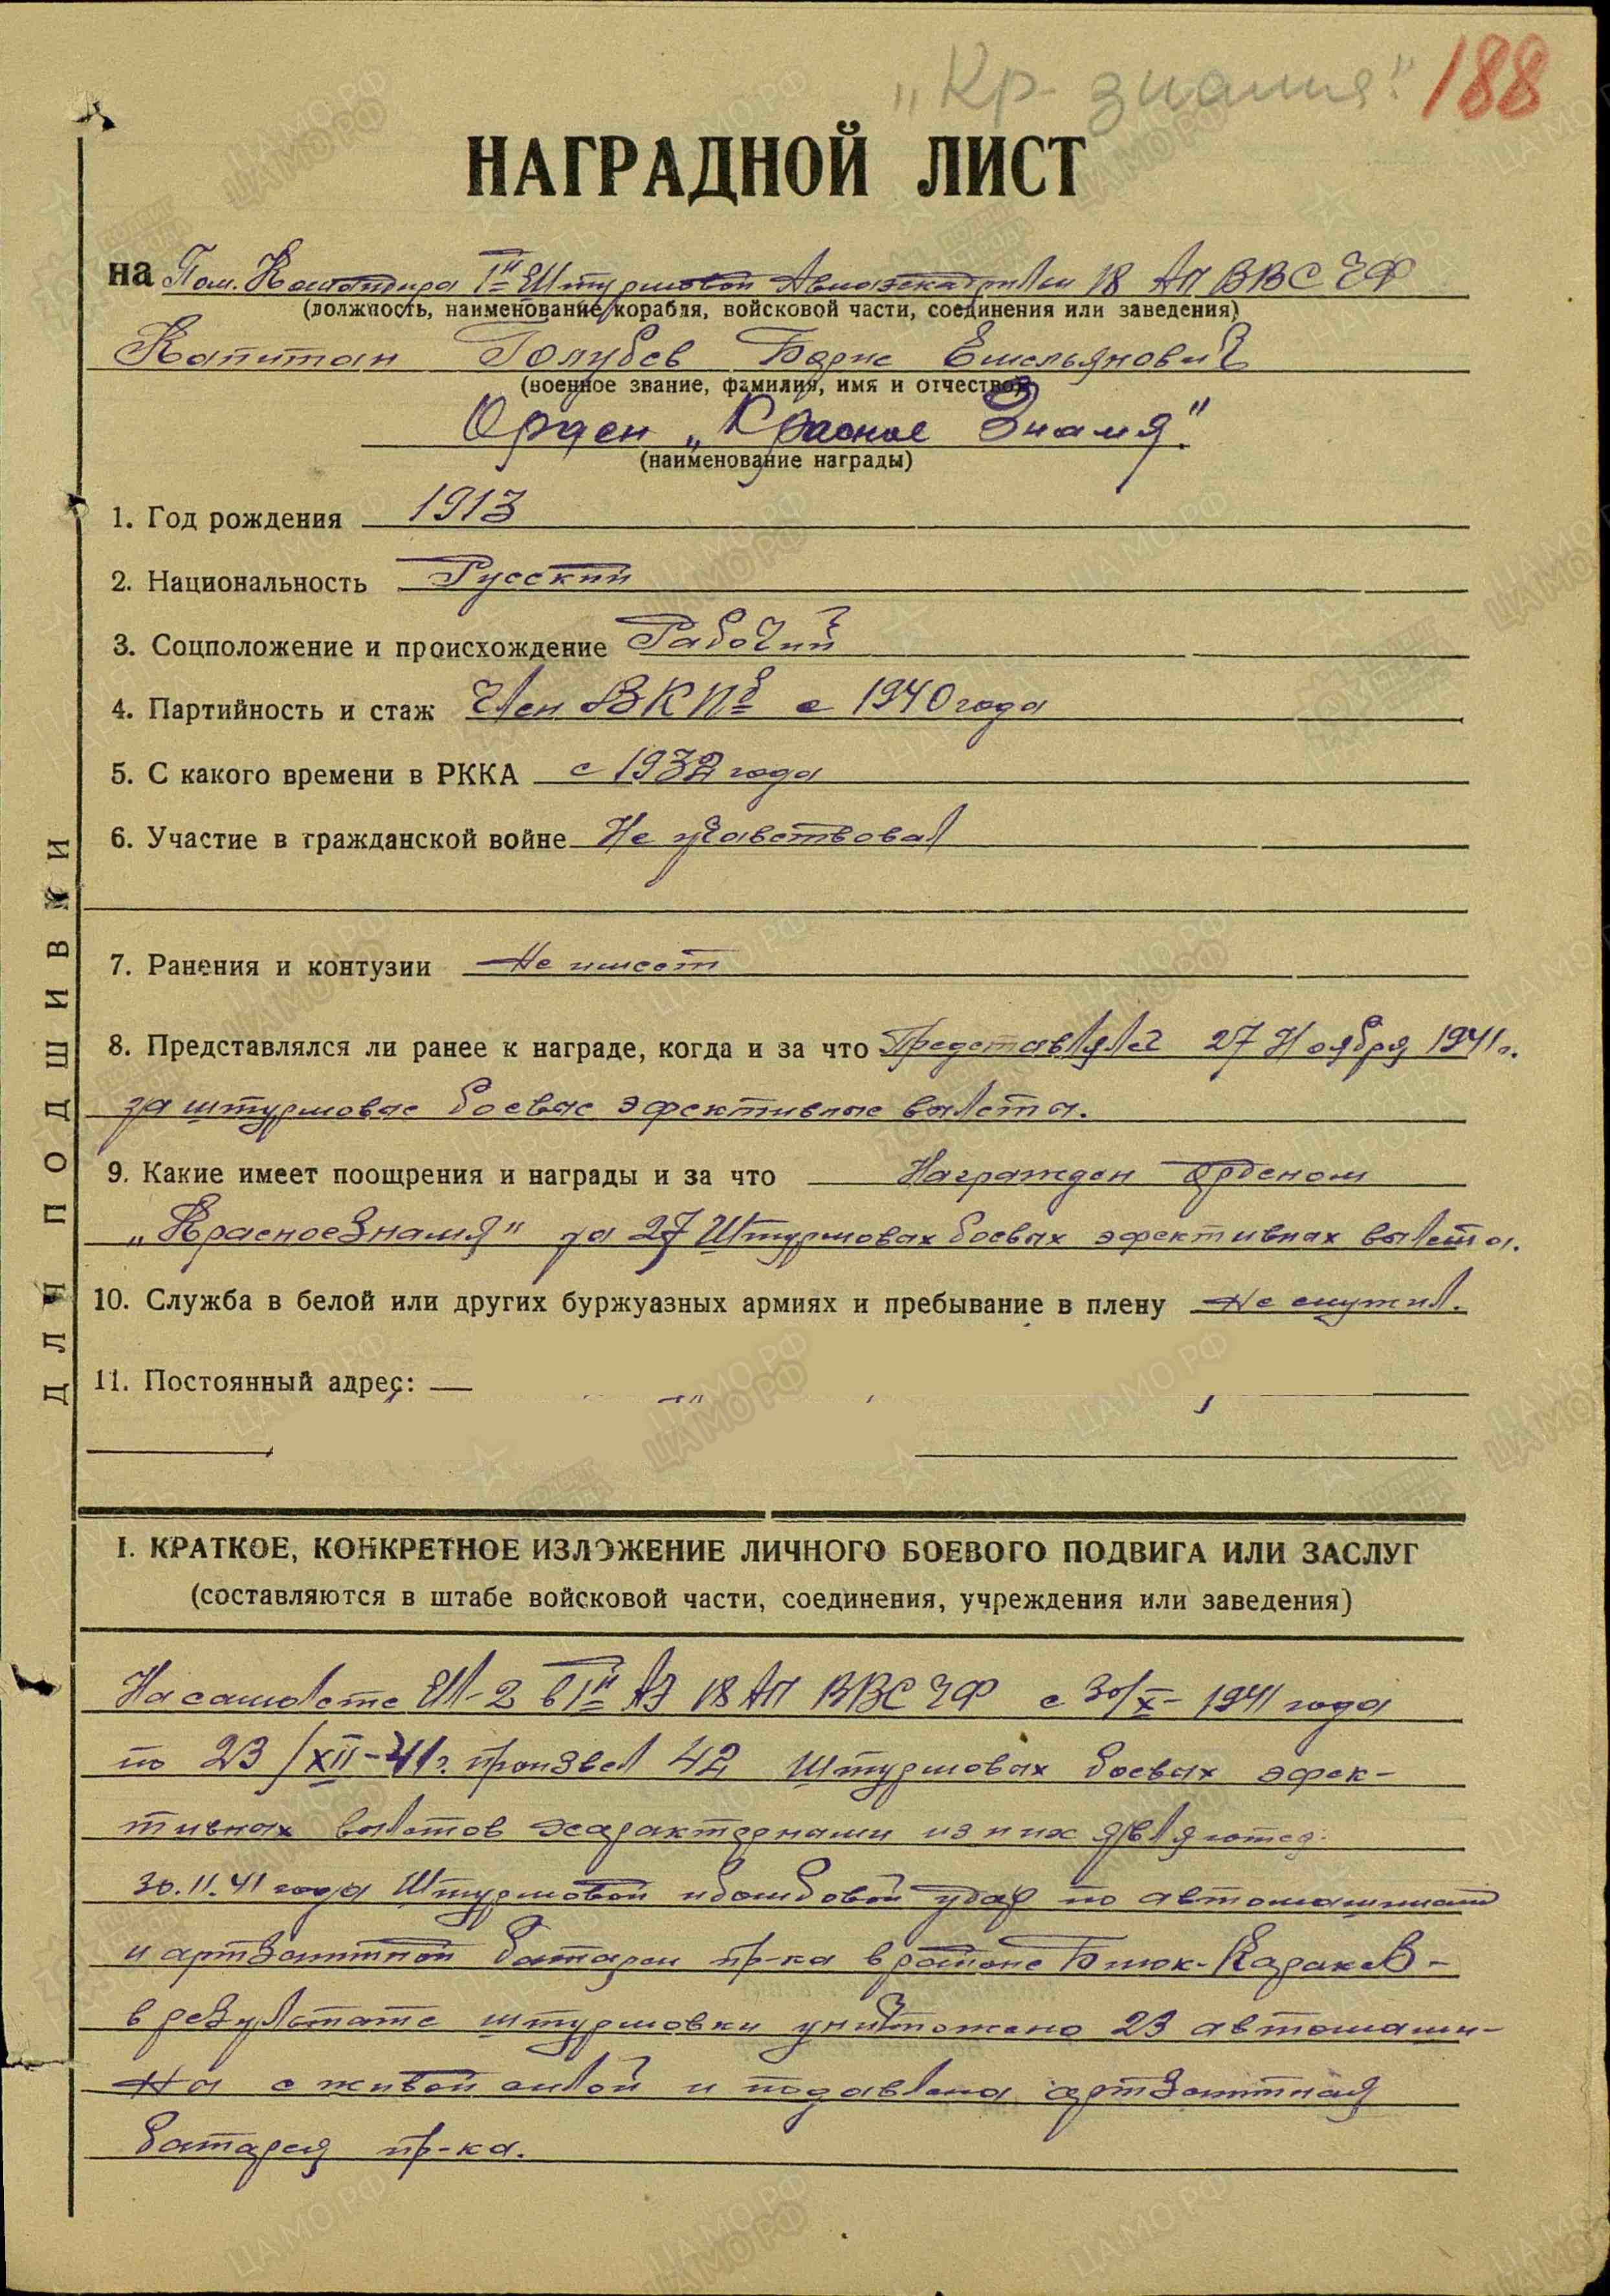 „Кр. знамя." 188
НАГРАДНОЙ ЛИСТ
на Пом. Командира I й Штурмовой Авиаэскадрильи 18 АП ВВС ЧФ
(должность, наименование корабля, войсковой части, соединения или заведения)
Капитан Голубев Борис Емельянович
(военное звание, фамилия, имя и отчество)
Орден „Красное Знамя"
(наименование награды)
1. Год рождения 1913
2. Национальность Русский
3. Соцположение и происхождение Рабочий
4. Партийность и стаж Член ВКПб с 1940 года
5. С какого времени в РККА с 1932 года
6. Участие в гражданской войне Не учавствовал
7. Ранения и контузии Не имеет
8. Представлялся ли ранее к награде, когда и за что Представлялся 27 Ноября 1941 г.
за штурмовые боевые эфективные вылеты.
9. Какие имеет поощрения и награды и за что Награжден Орденом
„Красное Знамя" за 27 Штурмовых боевых эфективных вылета.
10. Служба в белой или других буржуазных армиях и пребывание в плену Не служил.
11. Постоянный адрес:
ДЛЯ ПОДШИВКИ
I. КРАТКОЕ, КОНКРЕТНОЕ ИЗЛОЖЕНИЕ ЛИЧНОГО БОЕВОГО ПОДВИГА ИЛИ ЗАСЛУГ
(составляются в штабе войсковой части, соединения, учреждения или заведения)
На самолете ИЛ-2 в I й АЭ 18 АП ВВС ЧФ с 30/X-1941 года
по 23/XII-41г. произвел 42 Штурмовых боевых эфек-
тивных вылетов характерными из них являются:
30.11.41 года Штурмовой и бомбовой удар по автомашинам
и артзенитной батареи пр-ка в районе Биюк-Каралез -
в результате штурмовки уничтожено 23 автомаши-
ны с живой силой и подавлена артзенитная
батарея пр-ка.